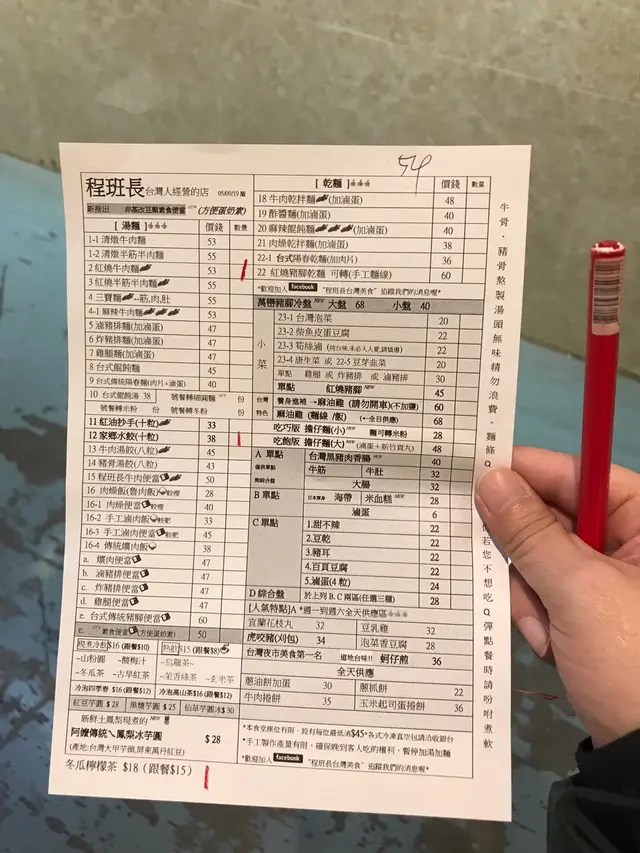 54
程班長 台灣人經營的店 05/09/19 版
新推出 非基改豆類素食便當 NEW (方便蛋奶素)
[ 湯麵 ] 價錢 數量
1-1 清燉牛肉麵 53
1-2 清燉半筋半肉麵 55
2 紅燒牛肉麵 53
3 紅燒半筋半肉麵 55
4 三寶麵--筋,肉,肚 55
4-1 麻辣牛肉麵 53
5 滷豬排麵(加滷蛋) 47
6 炸豬排麵(加滷蛋) 47
7 雞腿麵(加滷蛋) 47
8 台式餛飩麵 45
9 台式傳統陽春麵(肉片+滷蛋) 40
10 台式餛飩湯 38 號餐轉細圓麵 NEW 份
號餐轉米粉 份 號餐轉冬粉 份
11 紅油抄手(十粒) 33
12 家鄉水餃(十粒) 38
13 牛肉湯餃(八粒) 45
14 豬骨湯餃(八粒) 43
15 程班長牛肉便當 50
16 肉燥飯(魯肉飯) 較瘦 28
16-1 肉燥便當 較瘦 40
16-2 手工滷肉飯 較肥 33
16-3 手工滷肉便當 較肥 45
16-4 傳統爌肉飯 38
a. 爌肉便當 47
b. 滷豬排便當 47
c. 炸豬排便當 47
d. 雞腿便當 47
e. 台式傳統豬腳便當 60
e. 素食便當(方便蛋奶素) 50
現煮冷飲$16 (跟餐$10) 熱飲$15 (跟餐$8)
~山粉圓 ~酸梅汁 ~烏龍茶~
~冬瓜茶 ~古早紅茶 ~茉香綠茶 ~玄米茶
冷泡四季春 $16 (跟餐$12) 冷泡高山茶$16 (跟餐$12)
紅豆芋圓 $28 黑糖芋圓 $25 仙草芋圓冰$30
新鮮土鳳梨現煮的
阿嬤傳統ㄟ鳳梨冰芋圓 $28
(產地:台灣大甲芋頭,屏東萬丹紅豆)
冬瓜檸檬茶 $18 (跟餐$15)
[ 乾麵 ] 價錢 數量
18 牛肉乾拌麵(加滷蛋) 48
19 酢醬麵(加滷蛋) 40
20 麻辣餛飩麵(加滷蛋) 40
21 肉燥乾拌麵(加滷蛋) 38
22-1 台式陽春乾麵(加肉片) 36
22 紅燒豬腳乾麵 可轉(手工麵線) 60
*歡迎加入 facebook "程班長台灣美食" 追蹤我們的消息喔*
萬巒豬腳冷盤 NEW 大盤 68 小盤 40
小菜
23-1 台灣泡菜 20
23-2 柴魚皮蛋豆腐 22
23-3 筍絲滷 22
23-4 唐生菜 或 22-5 豆芽韭菜 20
單點 雞腿 或 炸豬排 或 滷豬排 30
單點 紅燒豬腳 NEW 45
台灣特色
養身進補→麻油雞 (請勿開車)(不加鹽) 60
麻油雞 (麵線/飯) (←全日供應) 68
吃巧版 擔仔麵(小) NEW 麵可轉米粉 28
吃飽版 擔仔麵(大) NEW (滷蛋+新竹貢丸) 48
A 單點 台灣黑豬肉香腸 NEW 40
牛筋 牛肚 32
大腸 32
B 單點 海帶 米血糕 NEW 28
滷蛋 6
C 單點 1.甜不辣 22
2.豆乾 22
3.豬耳 22
4.百頁豆腐 22
5.滷蛋(4 粒) 24
D 綜合盤 於上列 B.C 兩區(任選三種) 28
[人氣特點]A *週一到週六全天供應區
宜蘭花枝丸 32 豆乳雞 32
虎咬豬(刈包) 34 泡菜香豆腐 28
台灣夜市美食第一名 道地台味!! 蚵仔煎 36
全天供應
蔥油餅加蛋 30 蔥抓餅 22
牛肉捲餅 35 玉米起司蛋捲餅 36
*本食堂座位有限，設有每位最低消$45*各式冷凍真空包請洽收銀台
*手工製作產量有限，確保晚到客人吃的權利，暫停加湯加麵
*歡迎加入 facebook "程班長台灣美食" 追蹤我們的消息喔*
牛骨、豬骨熬製湯頭無味精勿浪費，麵條Q
若您不想吃Q彈點餐時請吩咐煮軟